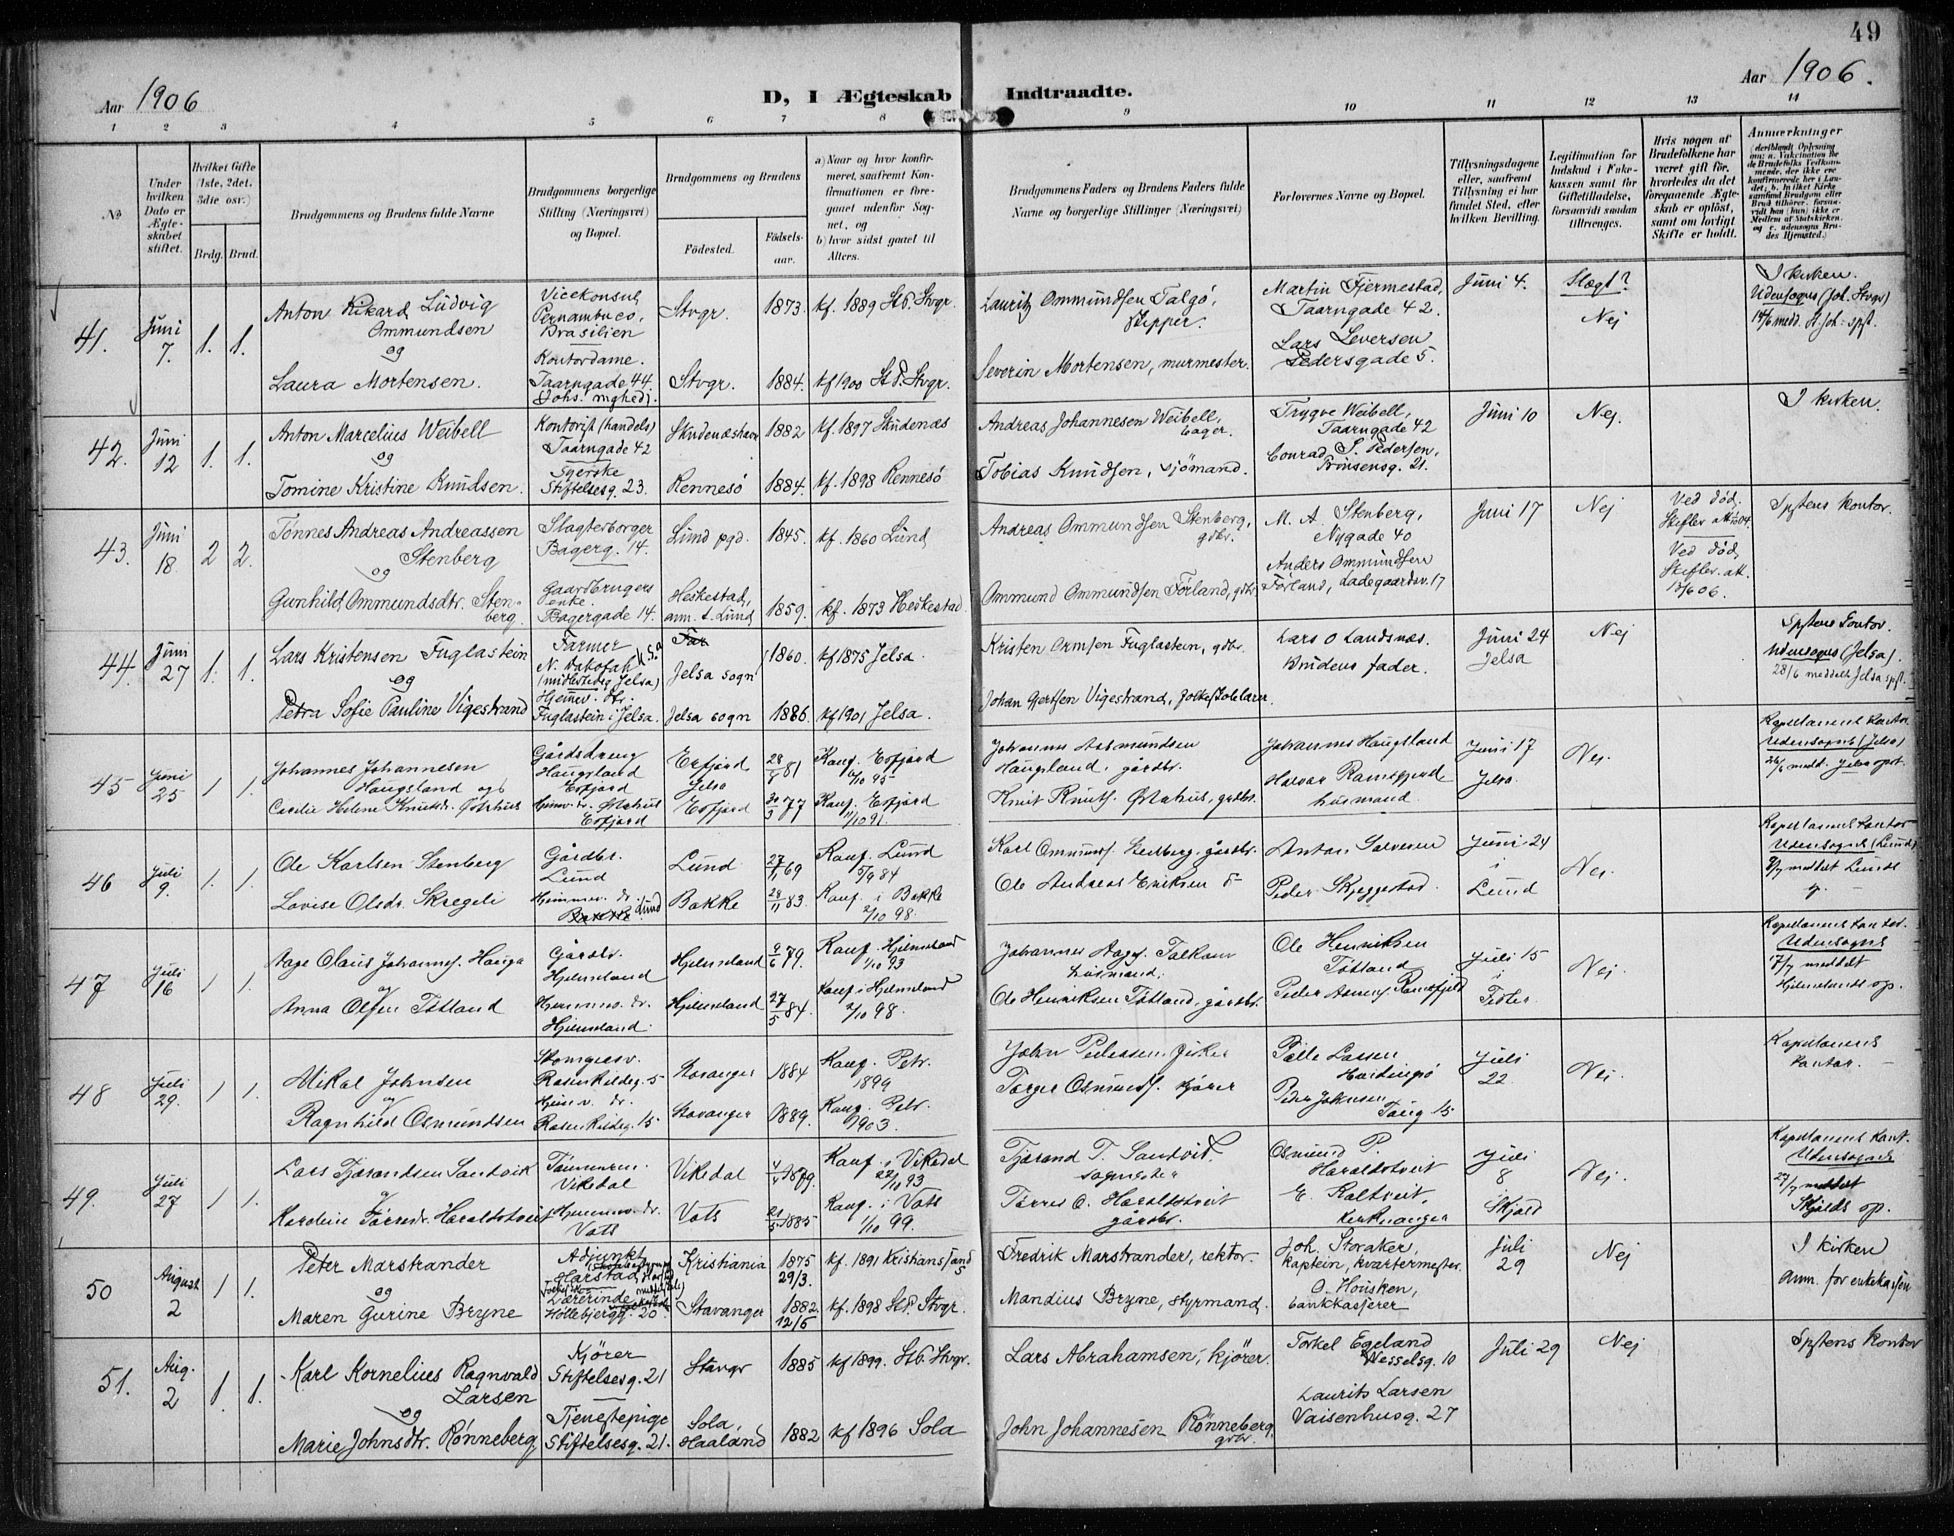 49
Aar 1906
D, I Ægteskab Indtraadte.
Aar 1906.
1 2 3 4 5 6 7 8 9 10 11 12 13 14
No
Under hvilken Dato er Ægteskabet stiftet.
Hvilket Gifte (1ste, 2det, 3die osv.)
Brdg. Brud.
Brudgommens og Brudens fulde Navne
Brudgommens borgerlige Stilling (Næringsvei) og Bopæl.
Brudgommens og Brudens
Fødested.
Fødselsaar.
a) Naar og hvor konfirmeret, saafremt Konfirmationen er foregaaet udenfor Sognet, og
b) hvor sidst gaaet til Alters.
Brudgommens Faders og Brudens Faders fulde Navne og borgerlige Stillinger (Næringsvei)
Forlovernes Navne og Bopæl.
Tillysningsdagene eller, saafremt Tillysning ei har fundet Sted, efter hvilken Bevilling.
Legitimation for Indskud i Enkekassen samt for Giftetilladelse, forsaavidt saadan tiltrænges.
Hvis nogen af Brudefolkene har været gift før, hvorledes da det foregaaende Ægteskab er opløst, samt om lovligt Skifte er holdt.
Anmærkninger
41. Juni 7. 1. 1.
Anton Rikard Ludvig Ommundsen
og
Laura Mortensen.
Vicekonsul, Pernambuco, Brasilien
Kontordame. Taarngade 44. (Johs. mghed).
Stvgr. 1873. kf. 1889 St.P. Stvgr.
Stvgr. 1884. kf 1900 St.P. Stvgr.
Lauritz Ommundsen Talgø, skipper.
Severin Mortensen, murmester.
Martin Fjermestad, Taarngade 42.
Lars Leversen Pedersgade 5.
Juni 4.
Slægt? Nej
I kirken. Udensogns (Joh. Stvgr) 14/6 medd. St Joh: spst.
42. Juni 12 1. 1.
Anton Marcelius Weibell
og
Tomine Kristine Knudsen.
Kontorist (handels) Taarngade 42
Syerske Stiftelsesg. 23.
Skudenæshavn 1882 kf. 1897 Skudenæs
Rennesö 1884. kf. 1898 Rennesö
Andreas Johannesen Weibell, bager.
Tobias Knudsen, sjömand.
Trygve Weibell, Taarngade 42
Conrad S. Pedersen, Prinsensg. 21.
Juni 10
Nej.
I kirken.
43. Juni 18. 2 2.
Tønnes Andreas Andreassen Stenberg
og
Gunhild Ommundsdtr. Stenberg.
Slagterborger Bagerg. 14.
Gaardbrugers enke. Bagergade 14.
Lund pgd. 1845. kf. 1860 Lund
Heskestad, ann. t. Lund 1859. kf. 1873 Heskestad
Andreas Ommundsen Stenberg, gdbr.
Ommund Ommundsen Førland, gdbr.
M. A. Stenberg, Nygade 40
Anders Ommundsen Førland, Ladegaardsv. 17
Juni 17
Nej
Ved død.
Ved død, Skiftev. att.
Spstens kontor.
44. Juni 27 1. 1.
Lars Kristensen Fuglastein
og
Petra Sofie Pauline Vigestrand
Farmer N. Dakotah U.S.a (midlertidig Jelsa)
Hjemmev. dtr. Fuglastein i Jelsa.
Jelsa sogn 1860. kf 1875 Jelsa.
Jelsa sogn 1886. kf 1901 Jelsa.
Kristen Ormsen Fuglastein, gdbr.
Johan Gjertsen Vigestrand, folkeskolelærer.
Lars O Landsnæs.
Brudens fader.
Juni 24 Jelsa
Nej
Spstens kontor. Udensogns (Jelsa). 28/6 meddelt Jelsa spst.
45 Juni 25 1 1.
Johannes Johannesen Haugsland og
Cecilie Helene Knutsdr. Østehus
Gårdsdreng Haugsland Erfjord
Hjemmv. dr. Østehus Erfjord
Erfjord Jelsa 81 Konf. Erfjord /10 95
Erfjord 77 Konf. Erfjord /10 91.
Johannes Aasmundsen Haugsland, gårdbr.
Knut Knuts. Østehus, gårdbr.
Johannes Haugsland
Halvor Ramsfjord husmand.
Juni 17 Jelsa
Nej.
Kapellanens kontor. Udensogns (Jelsa) 26/6 medd. Jelsa spst.
46 Juli 9. 1. 1.
Ole Karlsen Stenberg
Lovise Olsdr. Skregeli
Gårdbr. Lund
Hjemmev. dr. Lund
Lund 27 69 Konf. Lund 5/9 84
Bakke 28/11 83. Konf. i Bakke 2/10 98.
Karl Ommunds. Stenberg, gårdbr.
Ole Andreas Eriksen d-
Anton Salvesen
Peder Skjeggestad.
Juni 24 i Lund
Nej.
Kapellanens kontor Udensogns (Lund)
47 Juli 16 1 1.
Aage Olaus Johannes. Hauga
og
Anna Olsen Tøtland
Gårdbr. Hjelmeland
Hjemmev. dr. Hjelmeland.
Hjelmeland 9/6 79. Konf. Hjelmeland 1/10 93
Hjelmeland 27/5 84. Konf. i Hjelmeland 2/10 98.
Ole Henriksen Tøtland, gårdbr.
Ole Henriksen Tøtland
Juli 15 i Fister
Nej.
Kapellanens kontor. Udensogns 17/7 meddelt Hjelmelands sp.
48 Juli 29. 1. 1.
Mikal Johnsen
og
Ragnhild Osmundsen
Rosenkildeg. 5
Hjemv. dr. Rosenkildeg. 15
Stavanger 1884 Konf. Petr. 1899
Stavanger 1889. Konf. Petr. 1903.
John Pedersen, fisker
Torger Osmunds. kjører
Pelle Lassen
Peder Johnsen
Juli 22
Nej.
Kapellanens kontor.
49. Juli 27 1. 1.
Lars Tjerandsen Sandvik
og
Karoline Tørresdr. Haraldstveit
Tømmerm. Vikedal
Hjemmev. dr. Vats
Vikedal 1879. Konf. i Vikedal 22/10 93
Vats 1885 Konf. i Vats 1/10 99.
Tjerand T. Sandvik.
Tørres O. Haraldstveit gårdbr.
Osmund P. Haraldstveit
Juli 8 i Skjold
Nej.
Kapellanens kont. Udensogns 27/7 meddelt Skjolds sp.
50 August 2 1 1.
Peter Marstrander
og
Maren Gurine Bryne
Adjunkt Harstad
Lærerinde Hollebjergg. 20.
Kristiania 1875 29/3. kf. 1891 Kristianssand S
Stavanger 1882 12/5 kf. 1898 St.P. Stvgr.
Fredrik Marstrander, rektor.
Mandius Bryne, styrmand.
Joh. Storaker, kaptein, kvartermester.
O. Housken, bankkasserer
Juli 29
Nej
I kirken
Anm. for enkekassen
51. Aug. 2 1. 1.
Karl Kornelius Ragnvald Larsen
og
Marie Johnsdtr. Rønneberg
Kjører Stiftelsesg. 21
Tjenestepige Stiftelsesg. 21.
Stavgr 1885 kf 1899. St.P. Stvgr.
Sola, Haaland 1882 kf 1896 Sola
Lars Abrahamsen, kjører.
John Johannesen Rønneberg, gdbr.
Torkel Egeland Wesselsg. 10
Laurits Larsen Vaisenhusg. 27
Juli 29
Nej
Spstens kontor